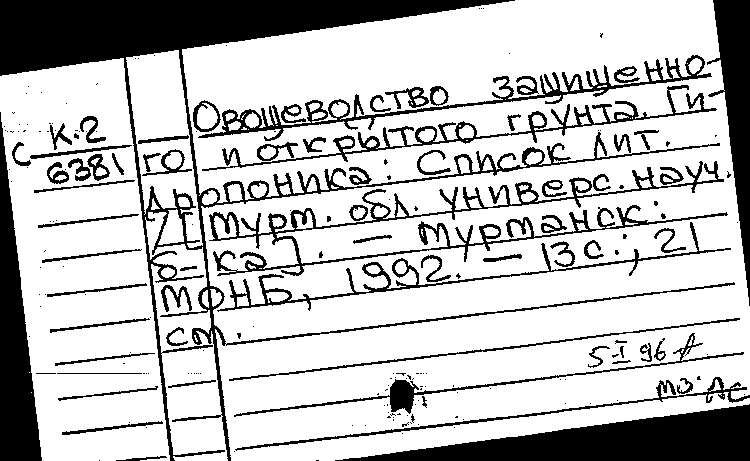 Овощеводство защищенно-
го и открытого грунта. Ги-
дропоника: Список лит.
/[Мурм. обл. универс. науч.
б-ка]. — Мурманск:
МОНБ, 1992. — 13с.; 21
см.
С К.2
6381
5-I 96